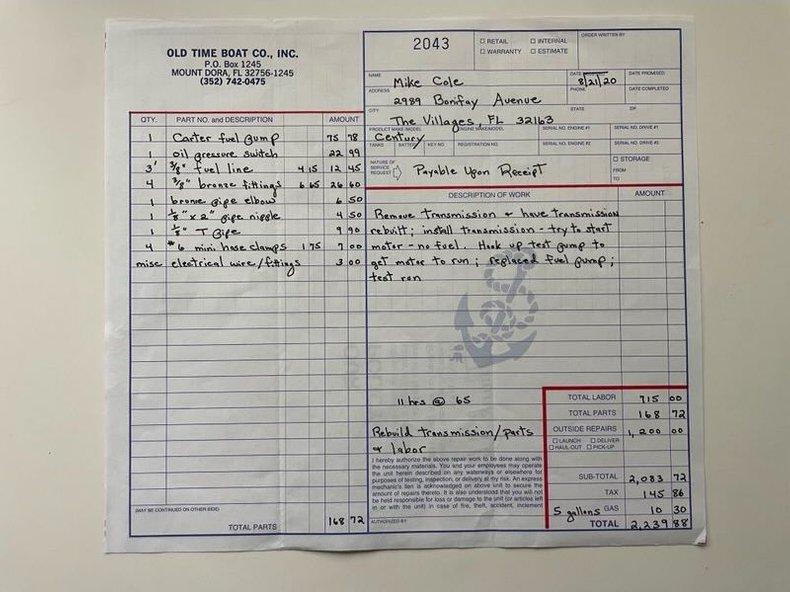 OLD TIME BOAT CO., INC.
P.O. Box 1245
MOUNT DORA, FL 32756-1245
(352) 742-0475
2043
☐ RETAIL ☐ INTERNAL
☐ WARRANTY ☐ ESTIMATE
ORDER WRITTEN BY
NAME Mike Cole
DATE 8/21/20
DATE PROMISED
ADDRESS 2989 Bonifay Avenue
PHONE
DATE COMPLETED
CITY The Villages, FL 32163
STATE
ZIP
PRODUCT MAKE/MODEL Century
ENGINE MAKE/MODEL
SERIAL NO. ENGINE #1
SERIAL NO. DRIVE #1
TANKS BATTERY KEY NO. REGISTRATION NO.
SERIAL NO. ENGINE #2
SERIAL NO. DRIVE #2
NATURE OF SERVICE REQUEST Payable Upon Receipt
☐ STORAGE
FROM
TO
QTY. PART NO. and DESCRIPTION AMOUNT
1 Carter fuel pump 75 78
1 oil pressure switch 22 99
3' 3/8" fuel line 4 15 12 45
4 3/8" bronze fittings 6 65 26 60
1 bronze pipe elbow 6 50
1 1/8" x 2" pipe nipple 4 50
1 1/8" T pipe 9 90
4 #6 mini hose clamps 1 75 7 00
misc electrical wire/fittings 3 00
(MAY BE CONTINUED ON OTHER SIDE)
TOTAL PARTS 168 72
DESCRIPTION OF WORK AMOUNT
Remove transmission & have transmission
rebuilt; install transmission - try to start
motor - no fuel. Hook up test pump to
get motor to run; replaced fuel pump;
test run
11 hrs @ 65
Rebuild transmission/parts
& labor
I hereby authorize the above repair work to be done along with
the necessary materials. You and your employees may operate
the unit herein described on any waterways or elsewhere for
purposes of testing, inspection, or delivery at my risk. An express
mechanic's lien is acknowledged on above unit to secure the
amount of repairs thereto. It is also understood that you will not
be held responsible for loss or damage to the unit (or articles left
in or with the unit) in case of fire, theft, accident, inclement
AUTHORIZED BY
TOTAL LABOR 715 00
TOTAL PARTS 168 72
OUTSIDE REPAIRS 1,200 00
☐ LAUNCH ☐ DELIVER
☐ HAUL-OUT ☐ PICK-UP
SUB-TOTAL 2,083 72
TAX 145 86
5 gallons GAS 10 30
TOTAL 2,239 88